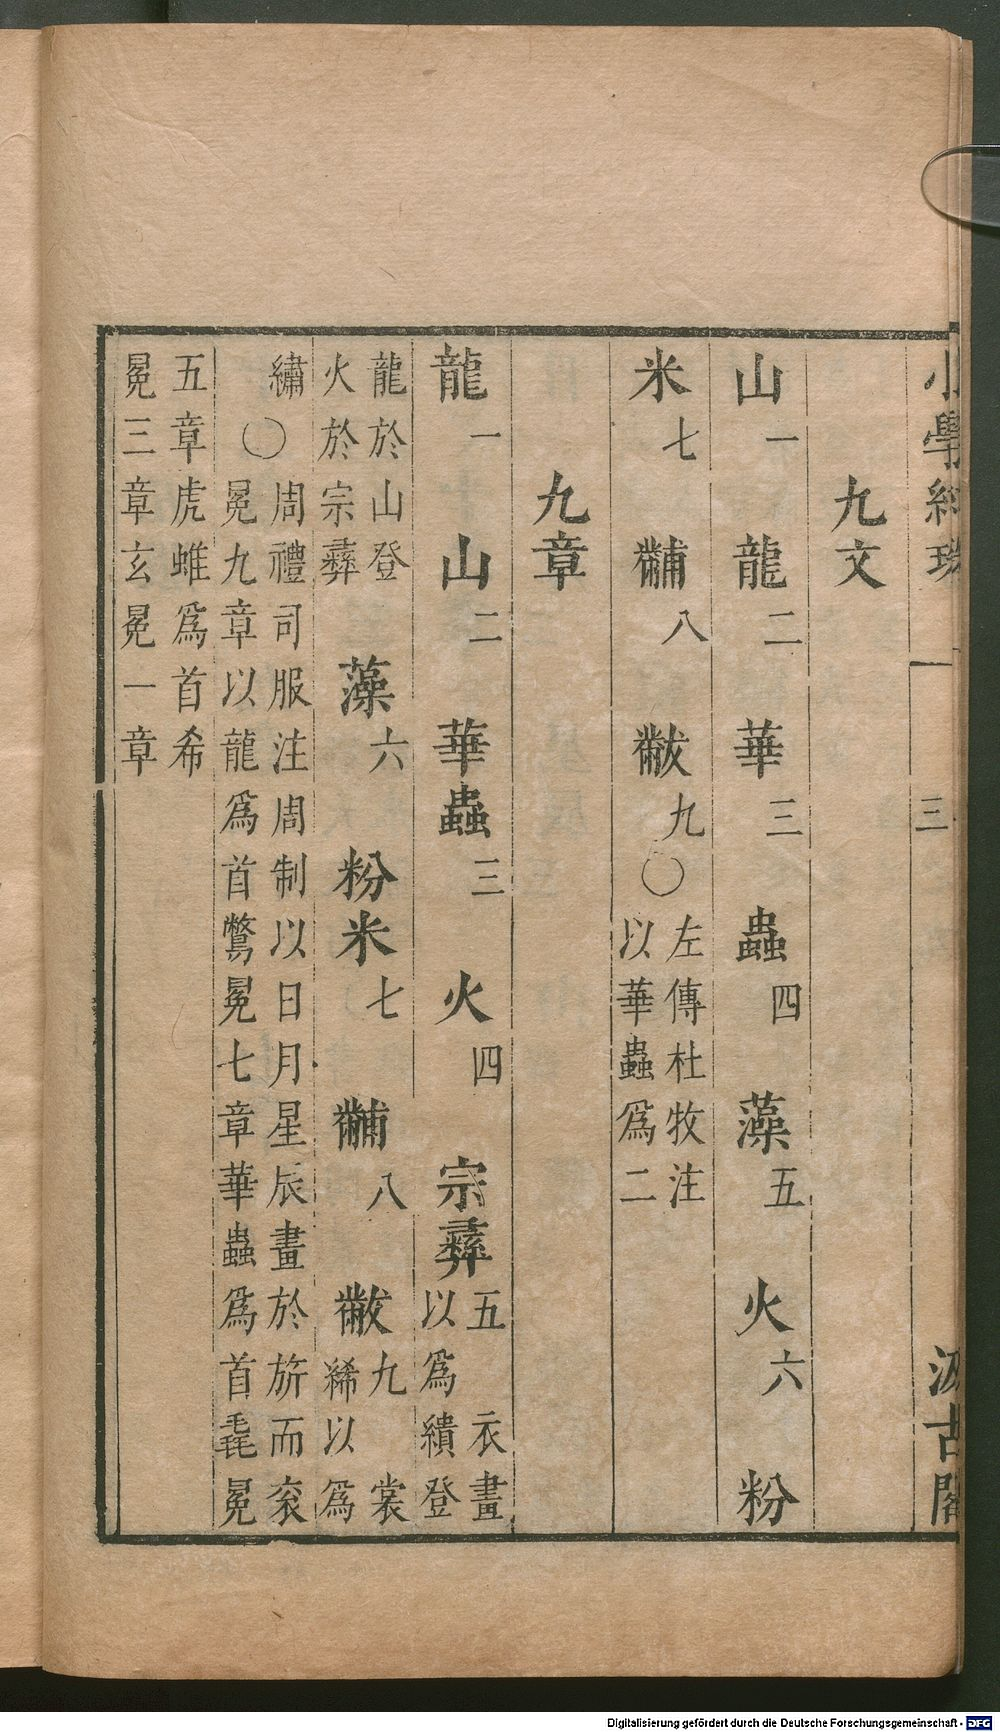 小學紺珠 一 三 汲古閣
九文
山一 龍二 華三 蟲四 藻五 火六 粉
米七 黼八 黻九○左傳杜牧注
以華蟲爲二
九章
龍一 山二 華蟲三 火四 宗彝五 衣畫
以爲繢登
龍於山登
火於宗彝 藻六 粉米七 黼八 黻九 裳
絺以爲
繡○周禮司服注周制以日月星辰畫於旂而衮
冕九章以龍爲首鷩冕七章華蟲爲首毳冕
五章虎蜼爲首希
冕三章玄冕一章
Digitalisierung gefördert durch die Deutsche Forschungsgemeinschaft - DFG